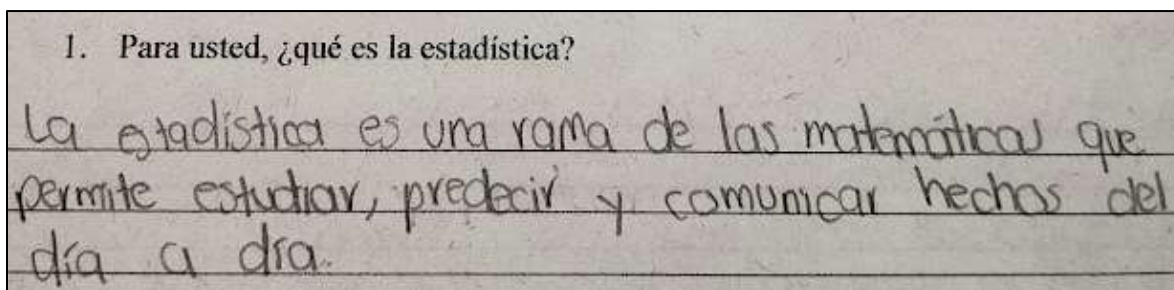 1. Para usted, ¿qué es la estadística?
La estadística es una rama de las matemáticas que
permite estudiar, predecir y comunicar hechos del
día a día.